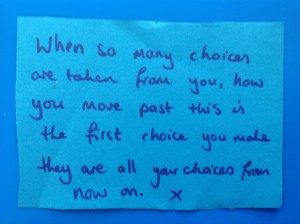 When so many choices
are taken from you, how
you move past this is
the first choice you make
they are all your choices from
now on. X